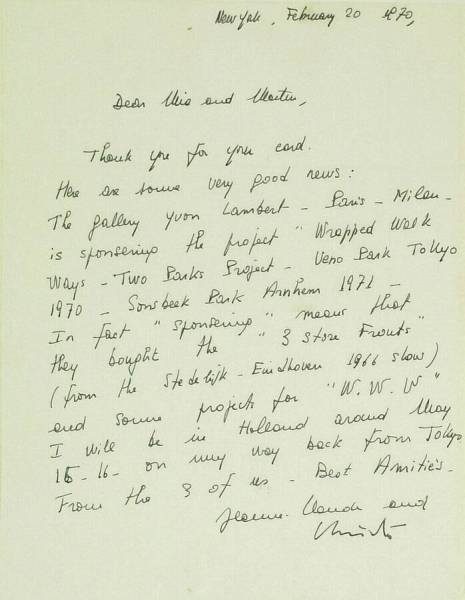 New York, February 20 1970,
Dear Mia and Martin,
Thank you for your card.
Here are some very good news:
The gallery Yvon Lambert - Paris - Milan -
is sponsering the project "Wrapped Walk
Ways - Two Parks Project - Ueno Park Tokyo
1970 - Sonsbeek Park Arnhem 1971 -
In fact "sponsering" means that
they bought the "3 Store Fronts"
(from the Stedelijk - Eindhoven 1966 show)
and some projects for "W.W.W"
I will be in Holland around May
15-16- on my way back from Tokyo
From the 3 of us - Best Amitiés -
Jeanne-Claude and
Christo